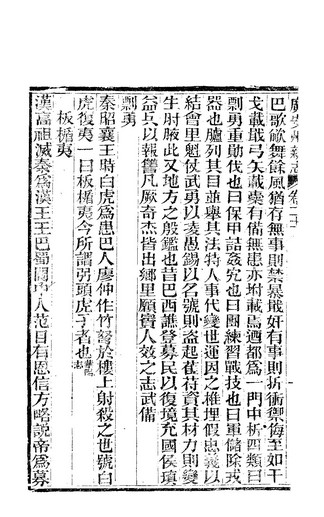 巴歌砍舞餘風猶有無事則禁暴戢奸有事則折衝禦侮至如干
戈載戢弓矢載櫜有備無患亦附載焉迺都為一門中析四類曰
剽勇重勛伐也曰保甲詰姦宄也曰團練習戰技也曰軍儲除戎
器也臚列其目並舉其法特人事代變世運因之椎埋假忠義以
結會里魁仗武勇以凌愚錫以名號則盜起萑苻資其材力則變
生肘腋此又地方之殷鑑也昔巴西譙登募民以復境充國侯瑱
益兵以報讐凡厥奇杰皆出鄉里願貴人效之志武備
剽勇
秦昭襄王時白虎為患巴人廖仲作竹弩於樓上射殺之也號白
虎復夷一曰板楯夷今所謂弜頭虎子者也
板楯夷
漢高祖滅秦為漢王王巴蜀閬內人范目有恩信方略說帝為募